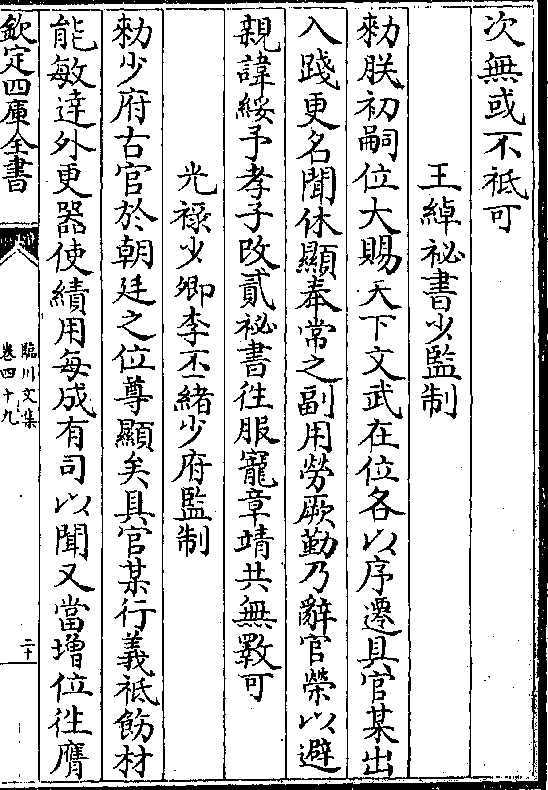 次無或不祗可
王綽祕書少監制
勑朕初嗣位大賜天下文武在位各以序遷具官某出
入踐更名聞休顯奉常之副用勞厥勤乃辭官榮以避
親諱綏予孝子改貳祕書徃服寵章靖共無斁可
光禄少卿李丕緒少府監制
勑少府右官於朝廷之位尊顯矣具官某行義祗飭材
能敏逹外更器使績用每成有司以聞又當增位徃膺
欽定四庫全書
臨川文集
卷四十九
二十